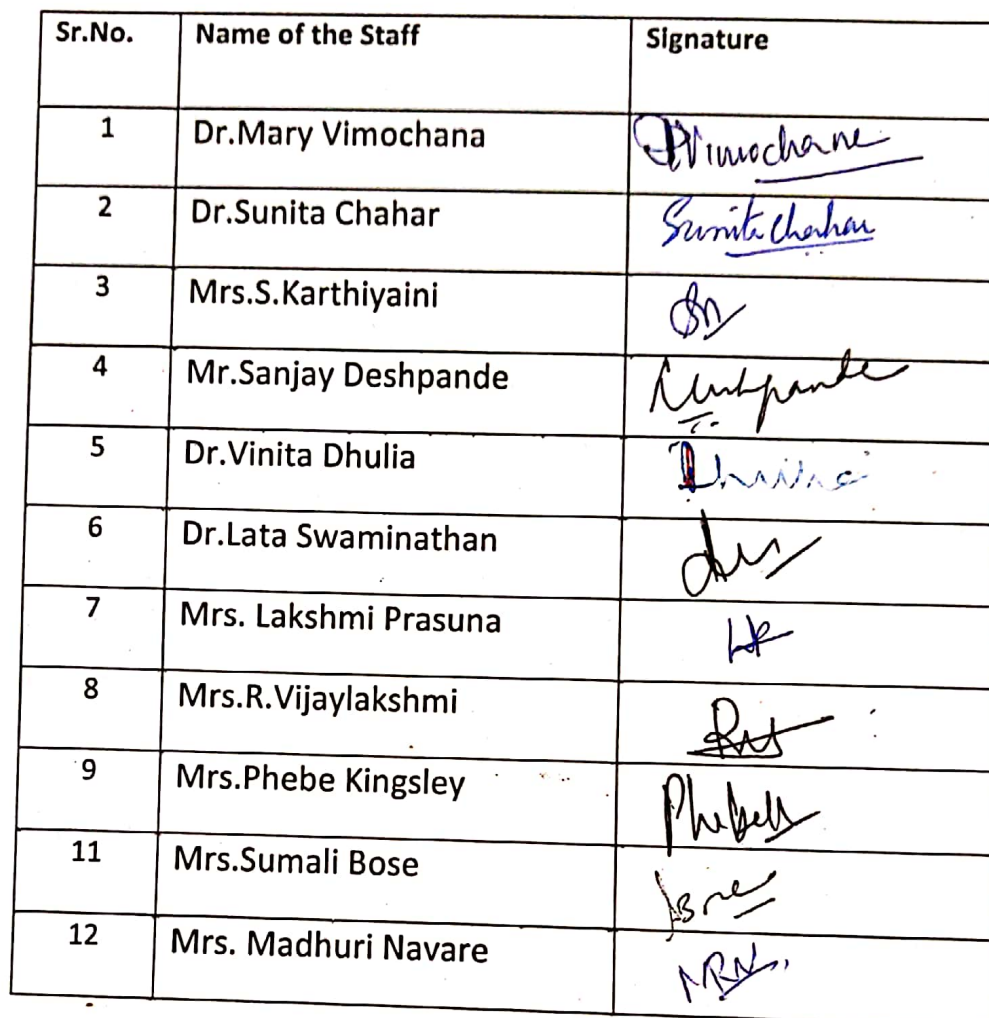 Sr.No. Name of the Staff Signature
1 Dr.Mary Vimochana Vimochane
2 Dr.Sunita Chahar Sunita Chahar
3 Mrs.S.Karthiyaini
4 Mr.Sanjay Deshpande
5 Dr.Vinita Dhulia
6 Dr.Lata Swaminathan
7 Mrs. Lakshmi Prasuna
8 Mrs.R.Vijaylakshmi
9 Mrs.Phebe Kingsley
11 Mrs.Sumali Bose
12 Mrs. Madhuri Navare